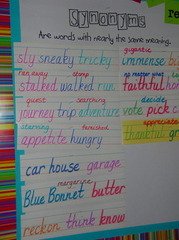 Synonyms
Re
Are words with nearly the same meaning.
gigantic
sly sneaky tricky immense bu
ran away stomp no matter what
stalked walked run faithful hon
quest searching decide
journey trip adventure vote pick c
starving famished appreciate
appetite hungry thankful gr
car house garage
margarine
Blue Bonnet butter
reckon think know